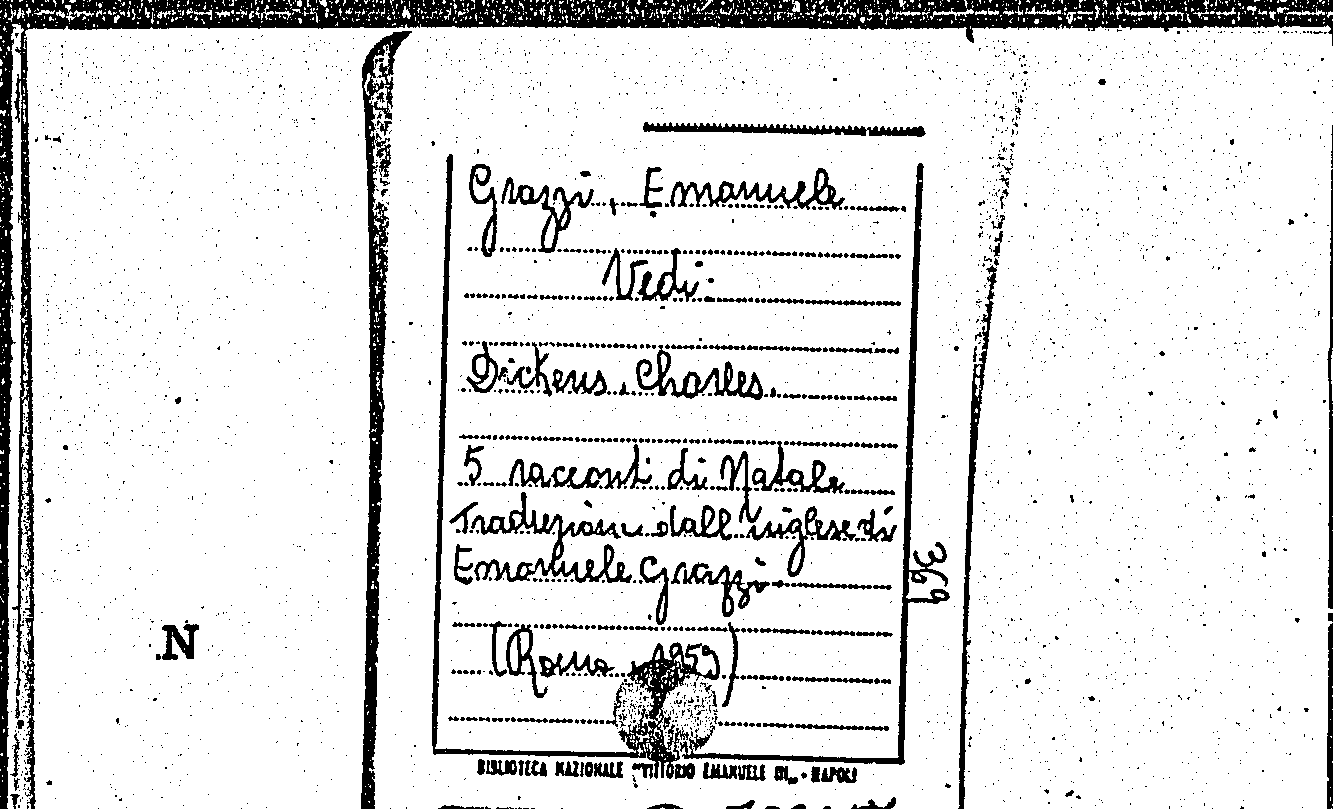 Grazzi, Emanuele
Vedi:
Dickens, Charles.
5 racconti di Natale
Traduzione dall'inglese di
Emanuele Grazzi.
(Roma, 1959)
369
N
BIBLIOTECA NAZIONALE "VITTORIO EMANUELE III„ - NAPOLI